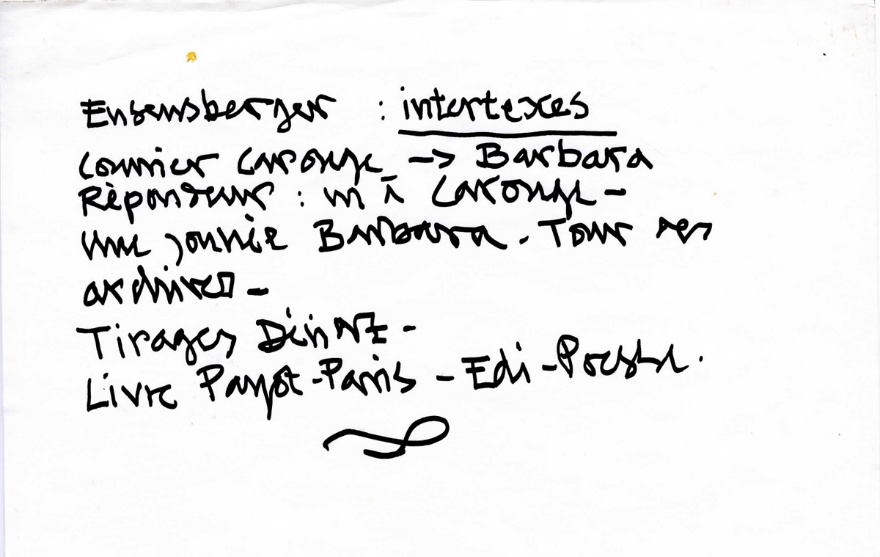 Enzensberger : intertextes
Courrier Carouge -> Barbara
Répondeur : m à Carouge -
Une journée Barbara. Tour des
archives -
Tirages Dinard -
Livre Payot-Paris - Edi-Poesie.